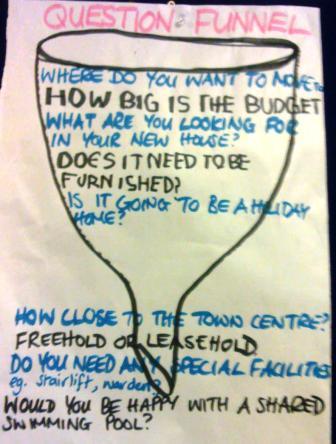 QUESTION FUNNEL
WHERE DO YOU WANT TO MOVE TO
HOW BIG IS THE BUDGET
WHAT ARE YOU LOOKING FOR
IN YOUR NEW HOUSE?
DOES IT NEED TO BE
FURNISHED?
IS IT GOING TO BE A HLIDAY
HOME?
HOW CLOSE TO THE TOWN CENTRE?
FREEHOLD OR LEASEHOLD
DO YOU NEED ANY SPECIAL FACILITIES
eg. stairlift, warden?
WOULD YOU BE HAPPY WITH A SHARED
SWIMMING POOL?